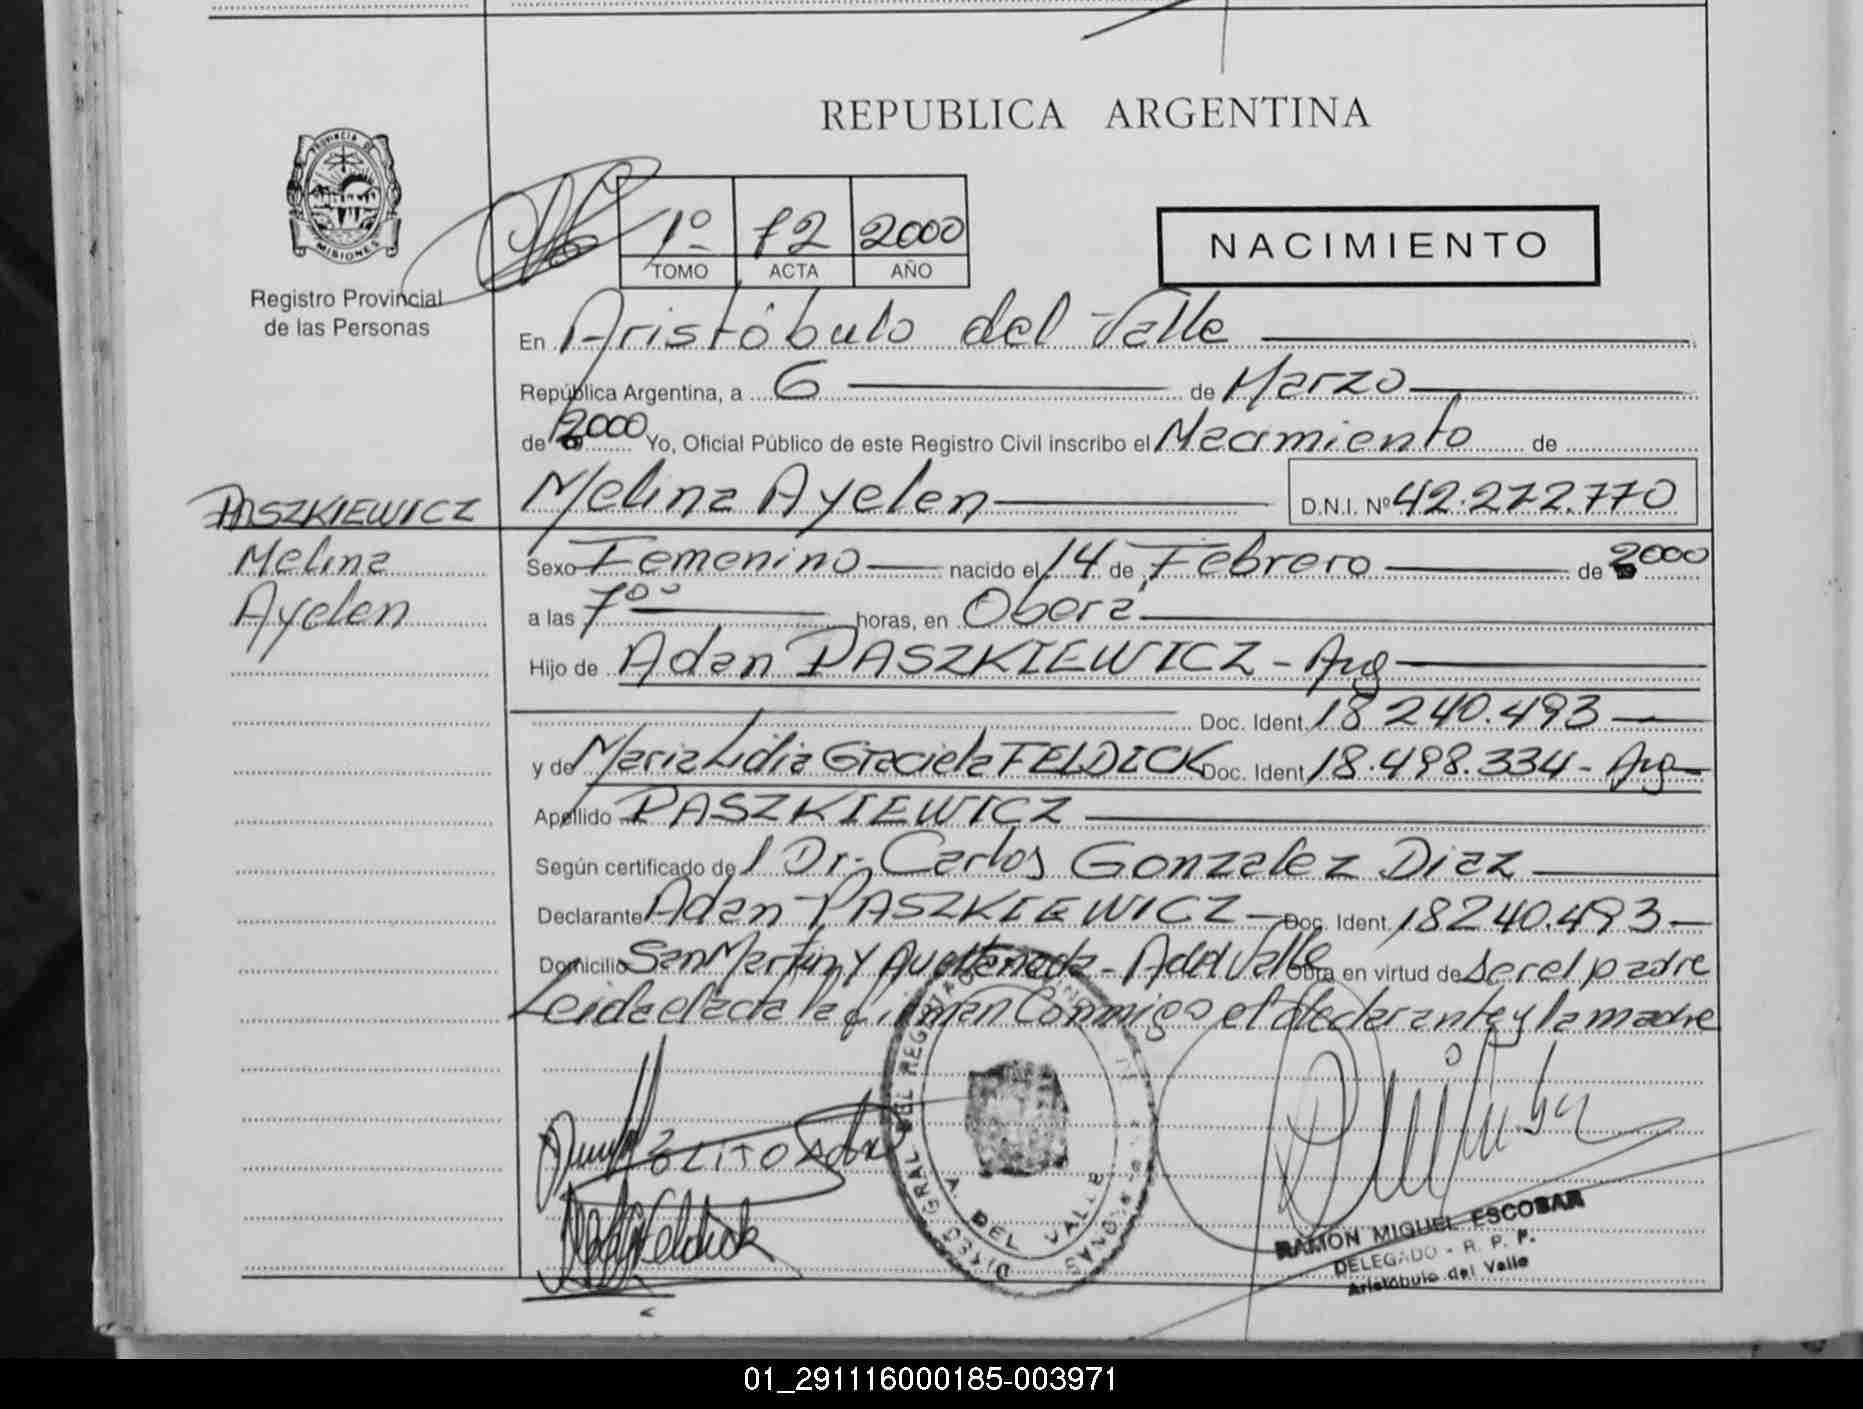 REPUBLICA ARGENTINA
PROVINCIA DE
MISIONES
Registro Provincial
de las Personas
1º 72 2000
TOMO ACTA AÑO
NACIMIENTO
En Aristóbulo del Valle
República Argentina, a 6 de Marzo
de 2000 Yo, Oficial Público de este Registro Civil inscribo el Nacimiento de
PASZKIEWICZ
Melina
Ayelen
Melina Ayelen D.N.I. Nº 42.272.770
Sexo Femenino nacido el 14 de Febrero de 2000
a las 7 00 horas, en Oberá
Hijo de Adan PASZKIEWICZ - Arg
Doc. Ident. 18 240.493
y de Maria Lidia Graciela FELDICK Doc. Ident. 18.498.334 - Arg
Apellido PASZKIEWICZ
Según certificado de l Dr. Carlos Gonzalez Diaz
Declarante Adan PASZKIEWICZ Doc. Ident. 18240.493
Domicilio San Martin y Avellaneda - A del Valle Obra en virtud de ser el padre
Leida el acta la firman Conmigo el declarante y la madre
DEL VALLE
Feldick
RAMON MIGUEL ESCOBAR
DELEGADO - R. P. P.
Aristóbulo del Valle
01_291116000185-003971